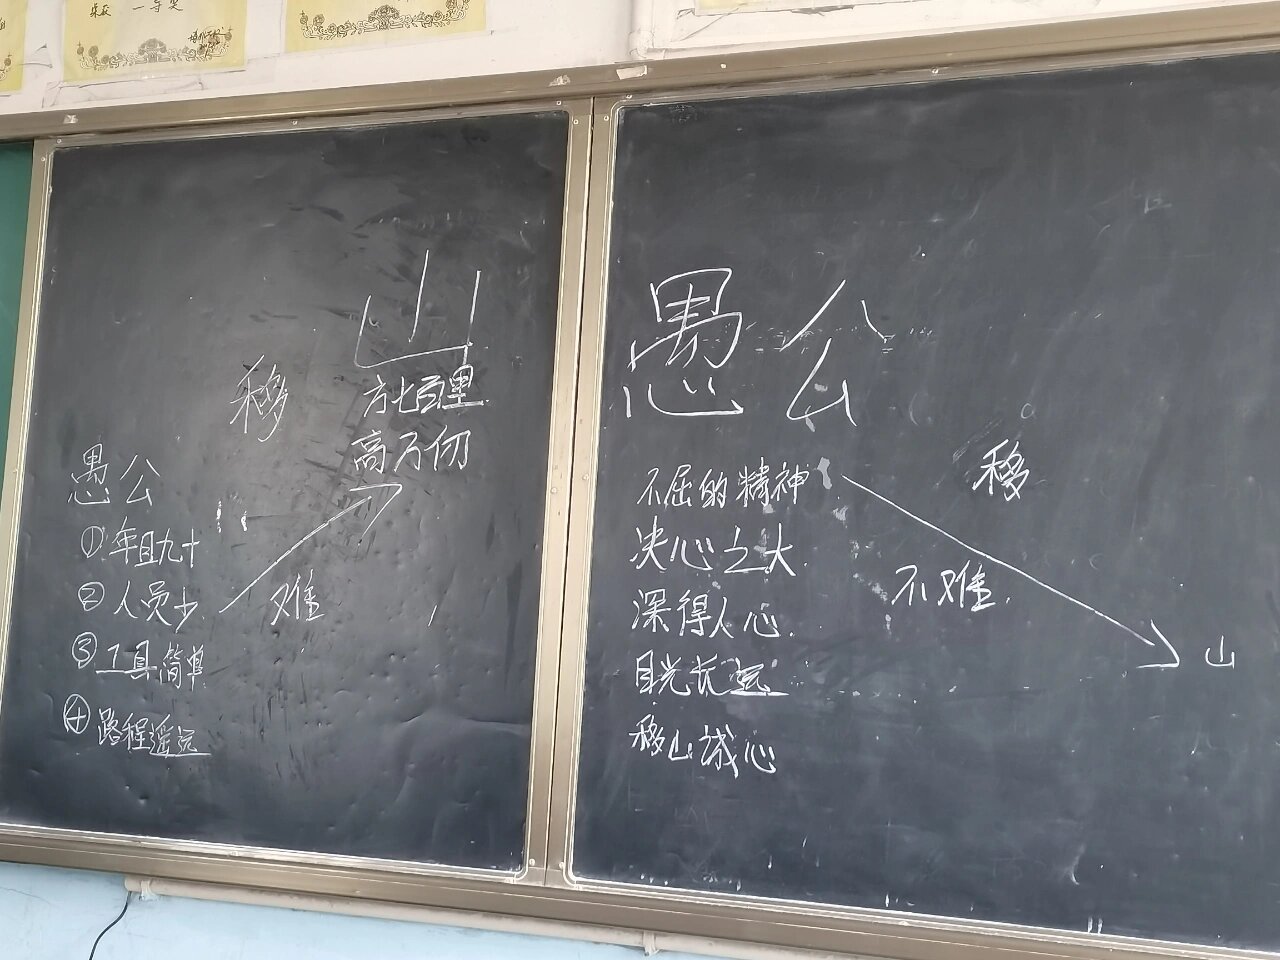 荣获 一等奖
山
移
方七百里
高万仞
愚公
①年且九十
②人员少
难
③工具简单
④路程遥远
愚公
移
不屈的精神
决心之大
不难.
深得人心.
目光长远
山
移山诚心